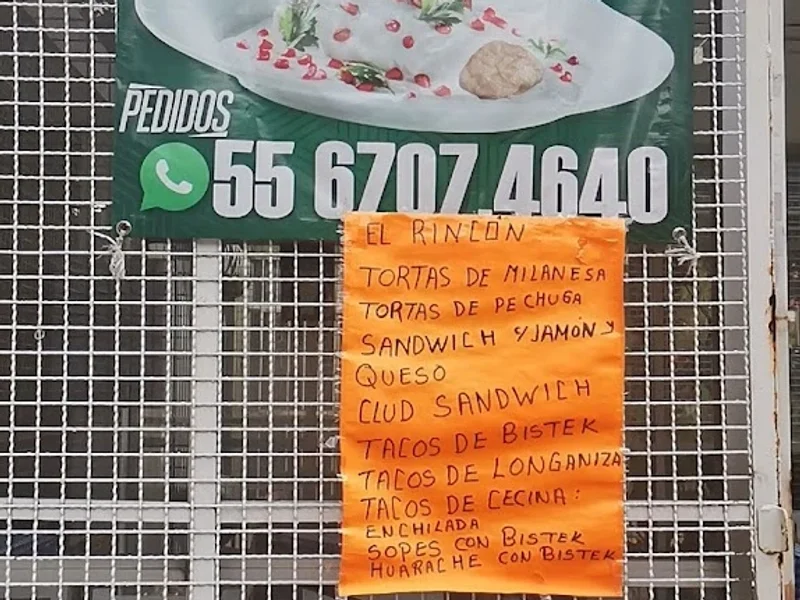 PEDIDOS
55 6707 4640
EL RINCÓN
TORTAS DE MILANESA
TORTAS DE PECHUGA
SANDWICH %JAMÓN Y
QUESO
CLUD SANDWICH
TACOS DE BISTEK
TACOS DE LONGANIZA
TACOS DE CECINA:
ENCHILADA
SOPES CON BISTEK
HUARACHE CON BISTEK